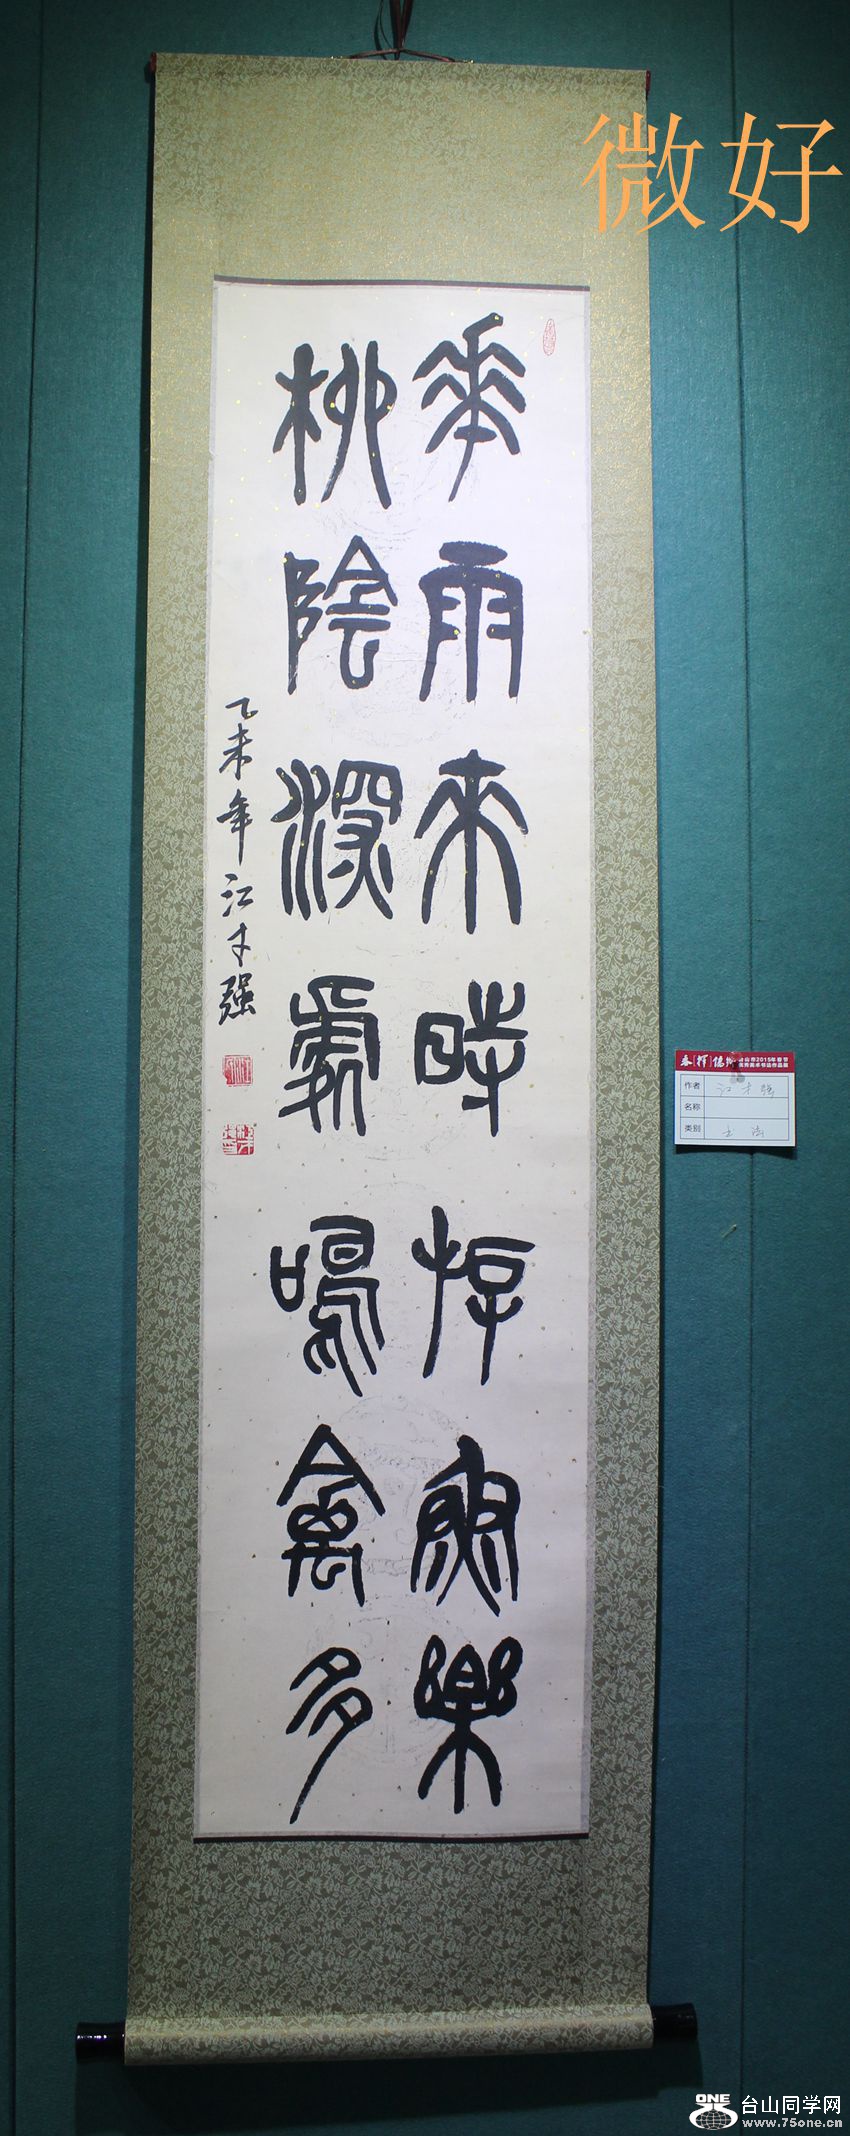 微好
華雨來時游魚樂
陰深處鳴禽多
乙未年江才强
台山市2015年春节
优秀美术书法作品展
作者 江才强
名称
类别 书法
ONE 台山同学网
www.75one.cn